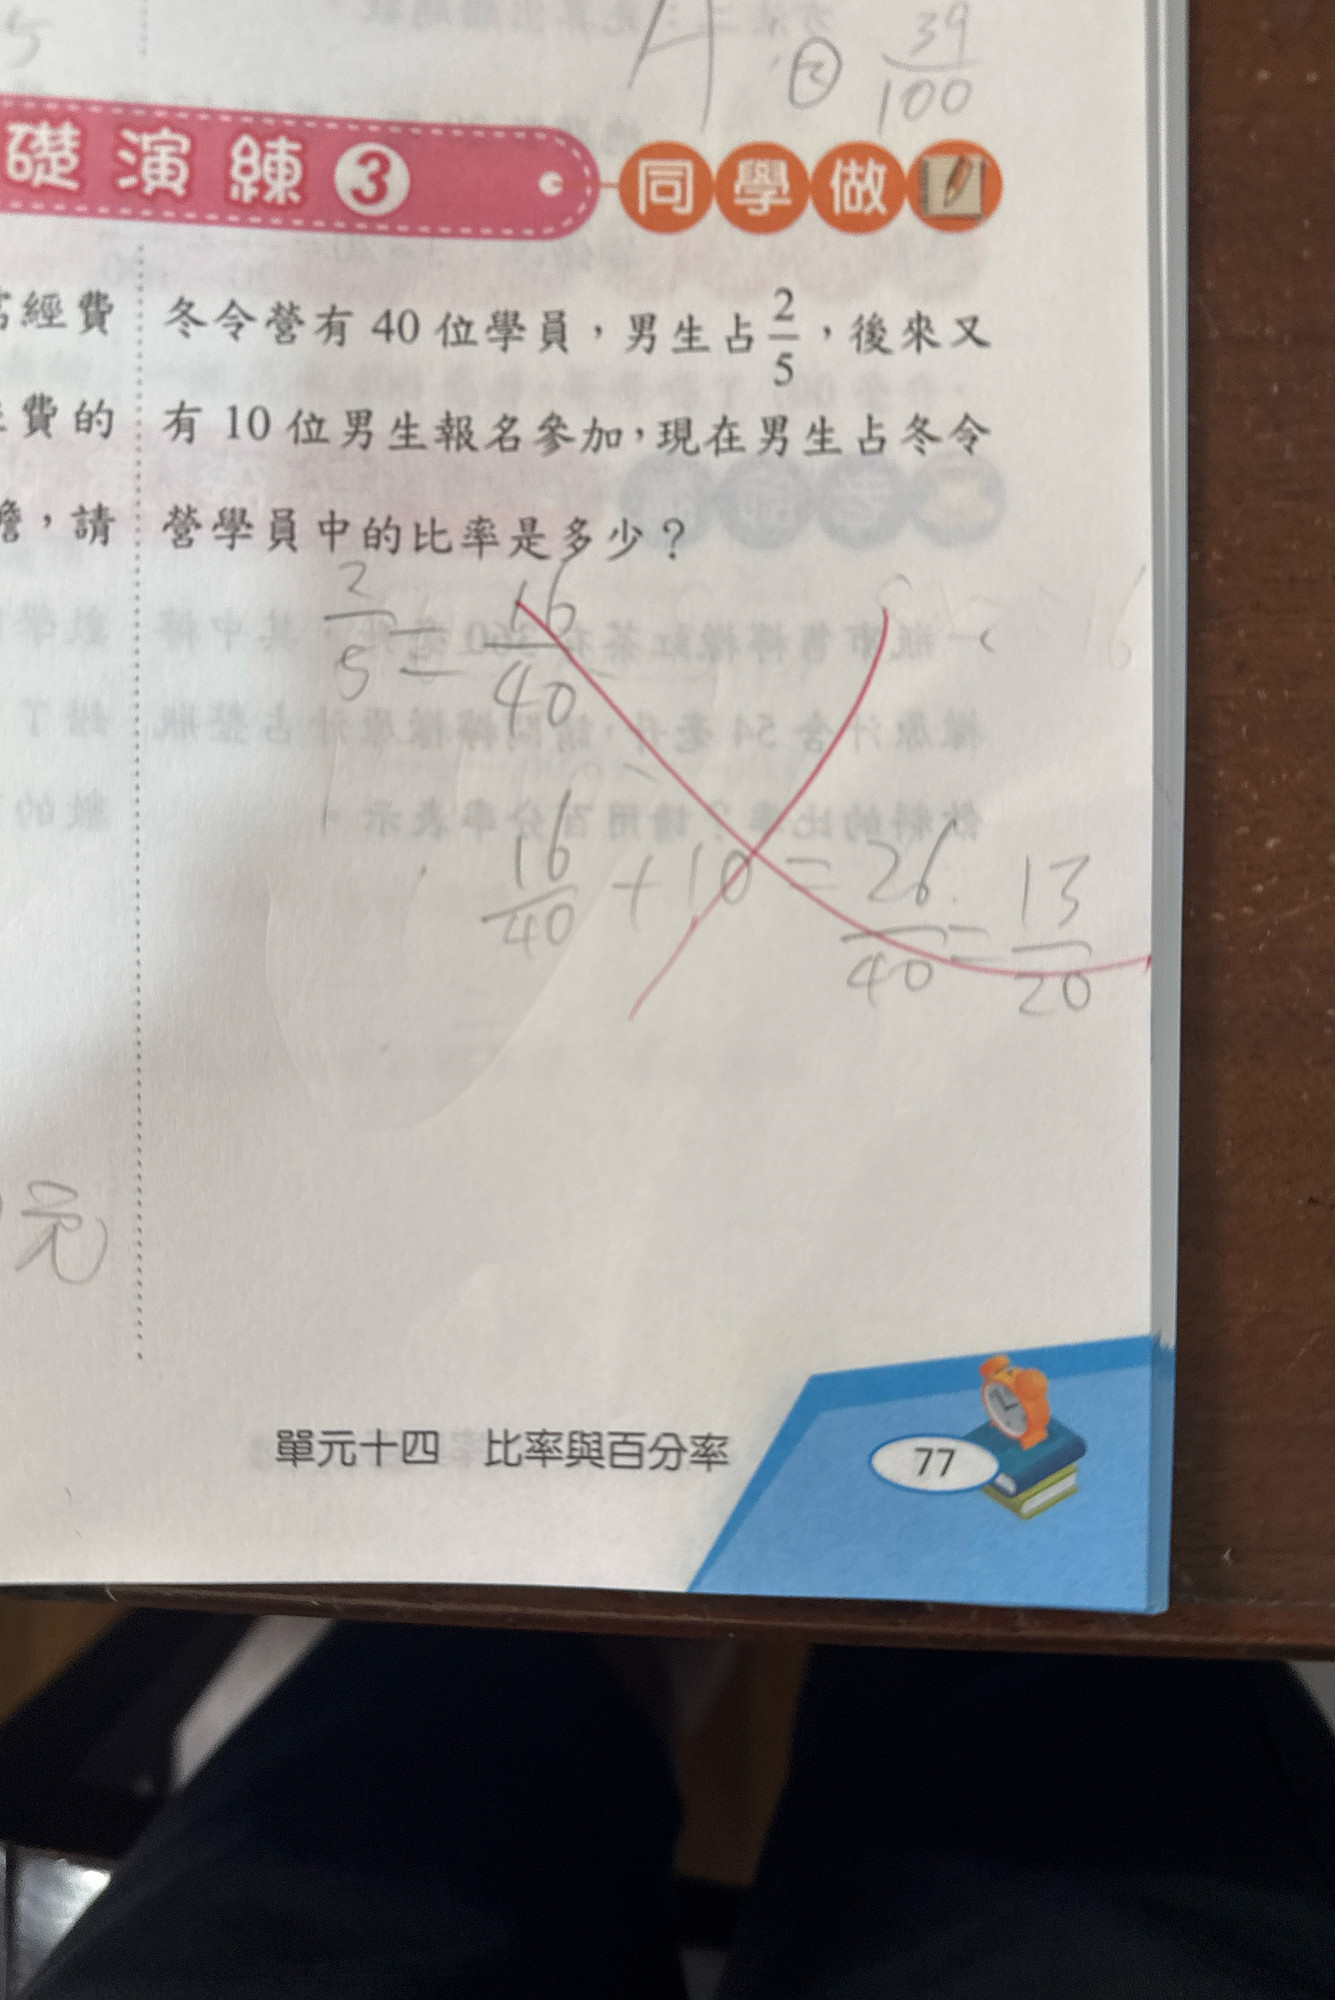 5
A:② 39/100
礎演練3 同學做
經費
費的
,請
冬令營有 40 位學員,男生占 2/5 ,後來又
有 10 位男生報名參加,現在男生占冬令
營學員中的比率是多少?
2/5 = 16/40
16/40 + 10 = 26/40 = 13/20
元
單元十四 比率與百分率
77